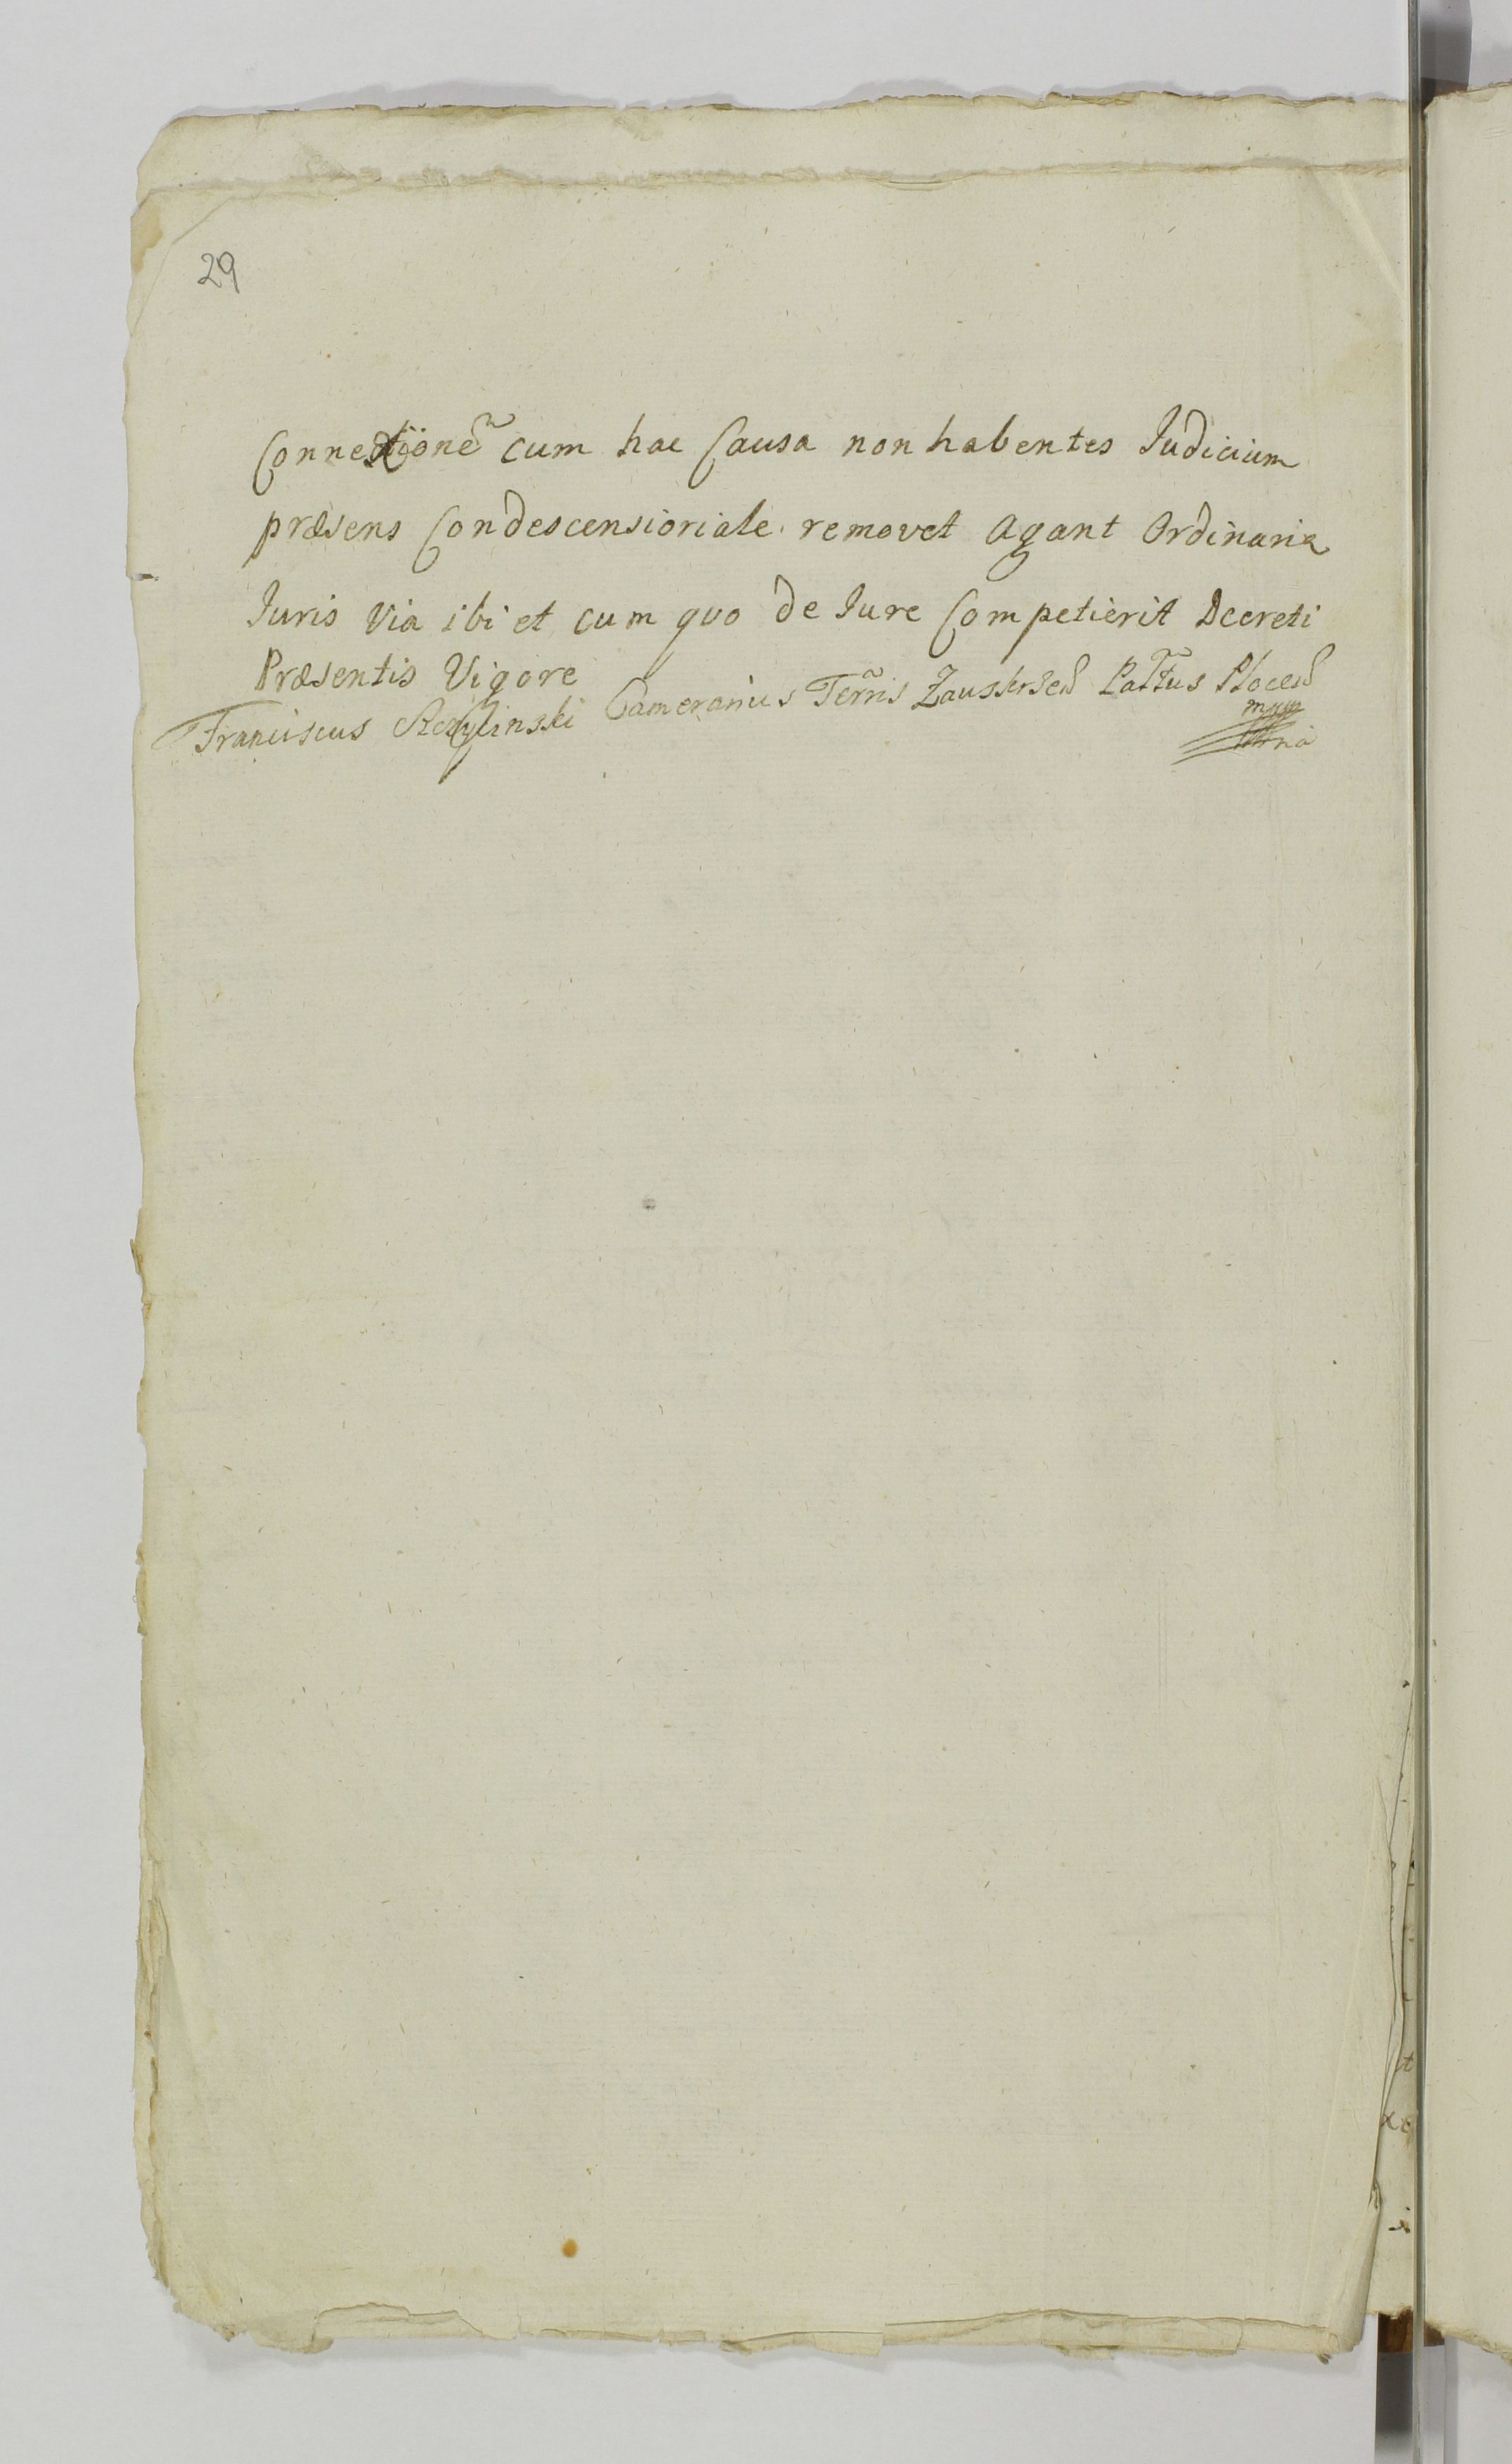 29
Connexione˜ cum hac Causa non habentes Judicium
præsens Condescensioriale removet Agant Ordinaria
Juris Via ibi et cum quo de Jure Competierit Dcereti
Præsentis Vigore
Franciscus Camerarius Terr̃is Pal̃tus Plocen